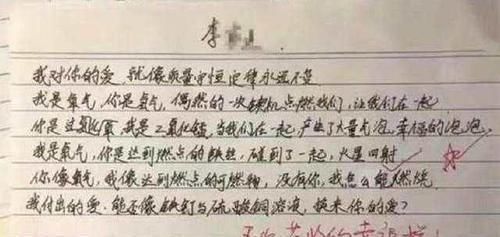 李
我对你的爱,就像质量守恒定律永远不变
我是氧气,你是氢气,偶然的一次 点燃我们,让我们在一起
你是过氧化氢,我是二氧化锰,当我们在一起,产生了大量气泡,幸福的泡泡,
我是氧气,你是达到燃点的铁丝,碰到了一起,火星四射
你像氧气,我像达到燃点的可燃物,没有你,我怎么能燃烧
我付出的爱,能否像铁钉与硫酸铜溶液,换来你的爱?